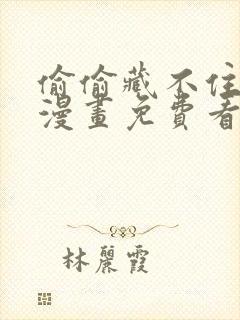 偷偷藏不住
漫畫免費看
林麗霞